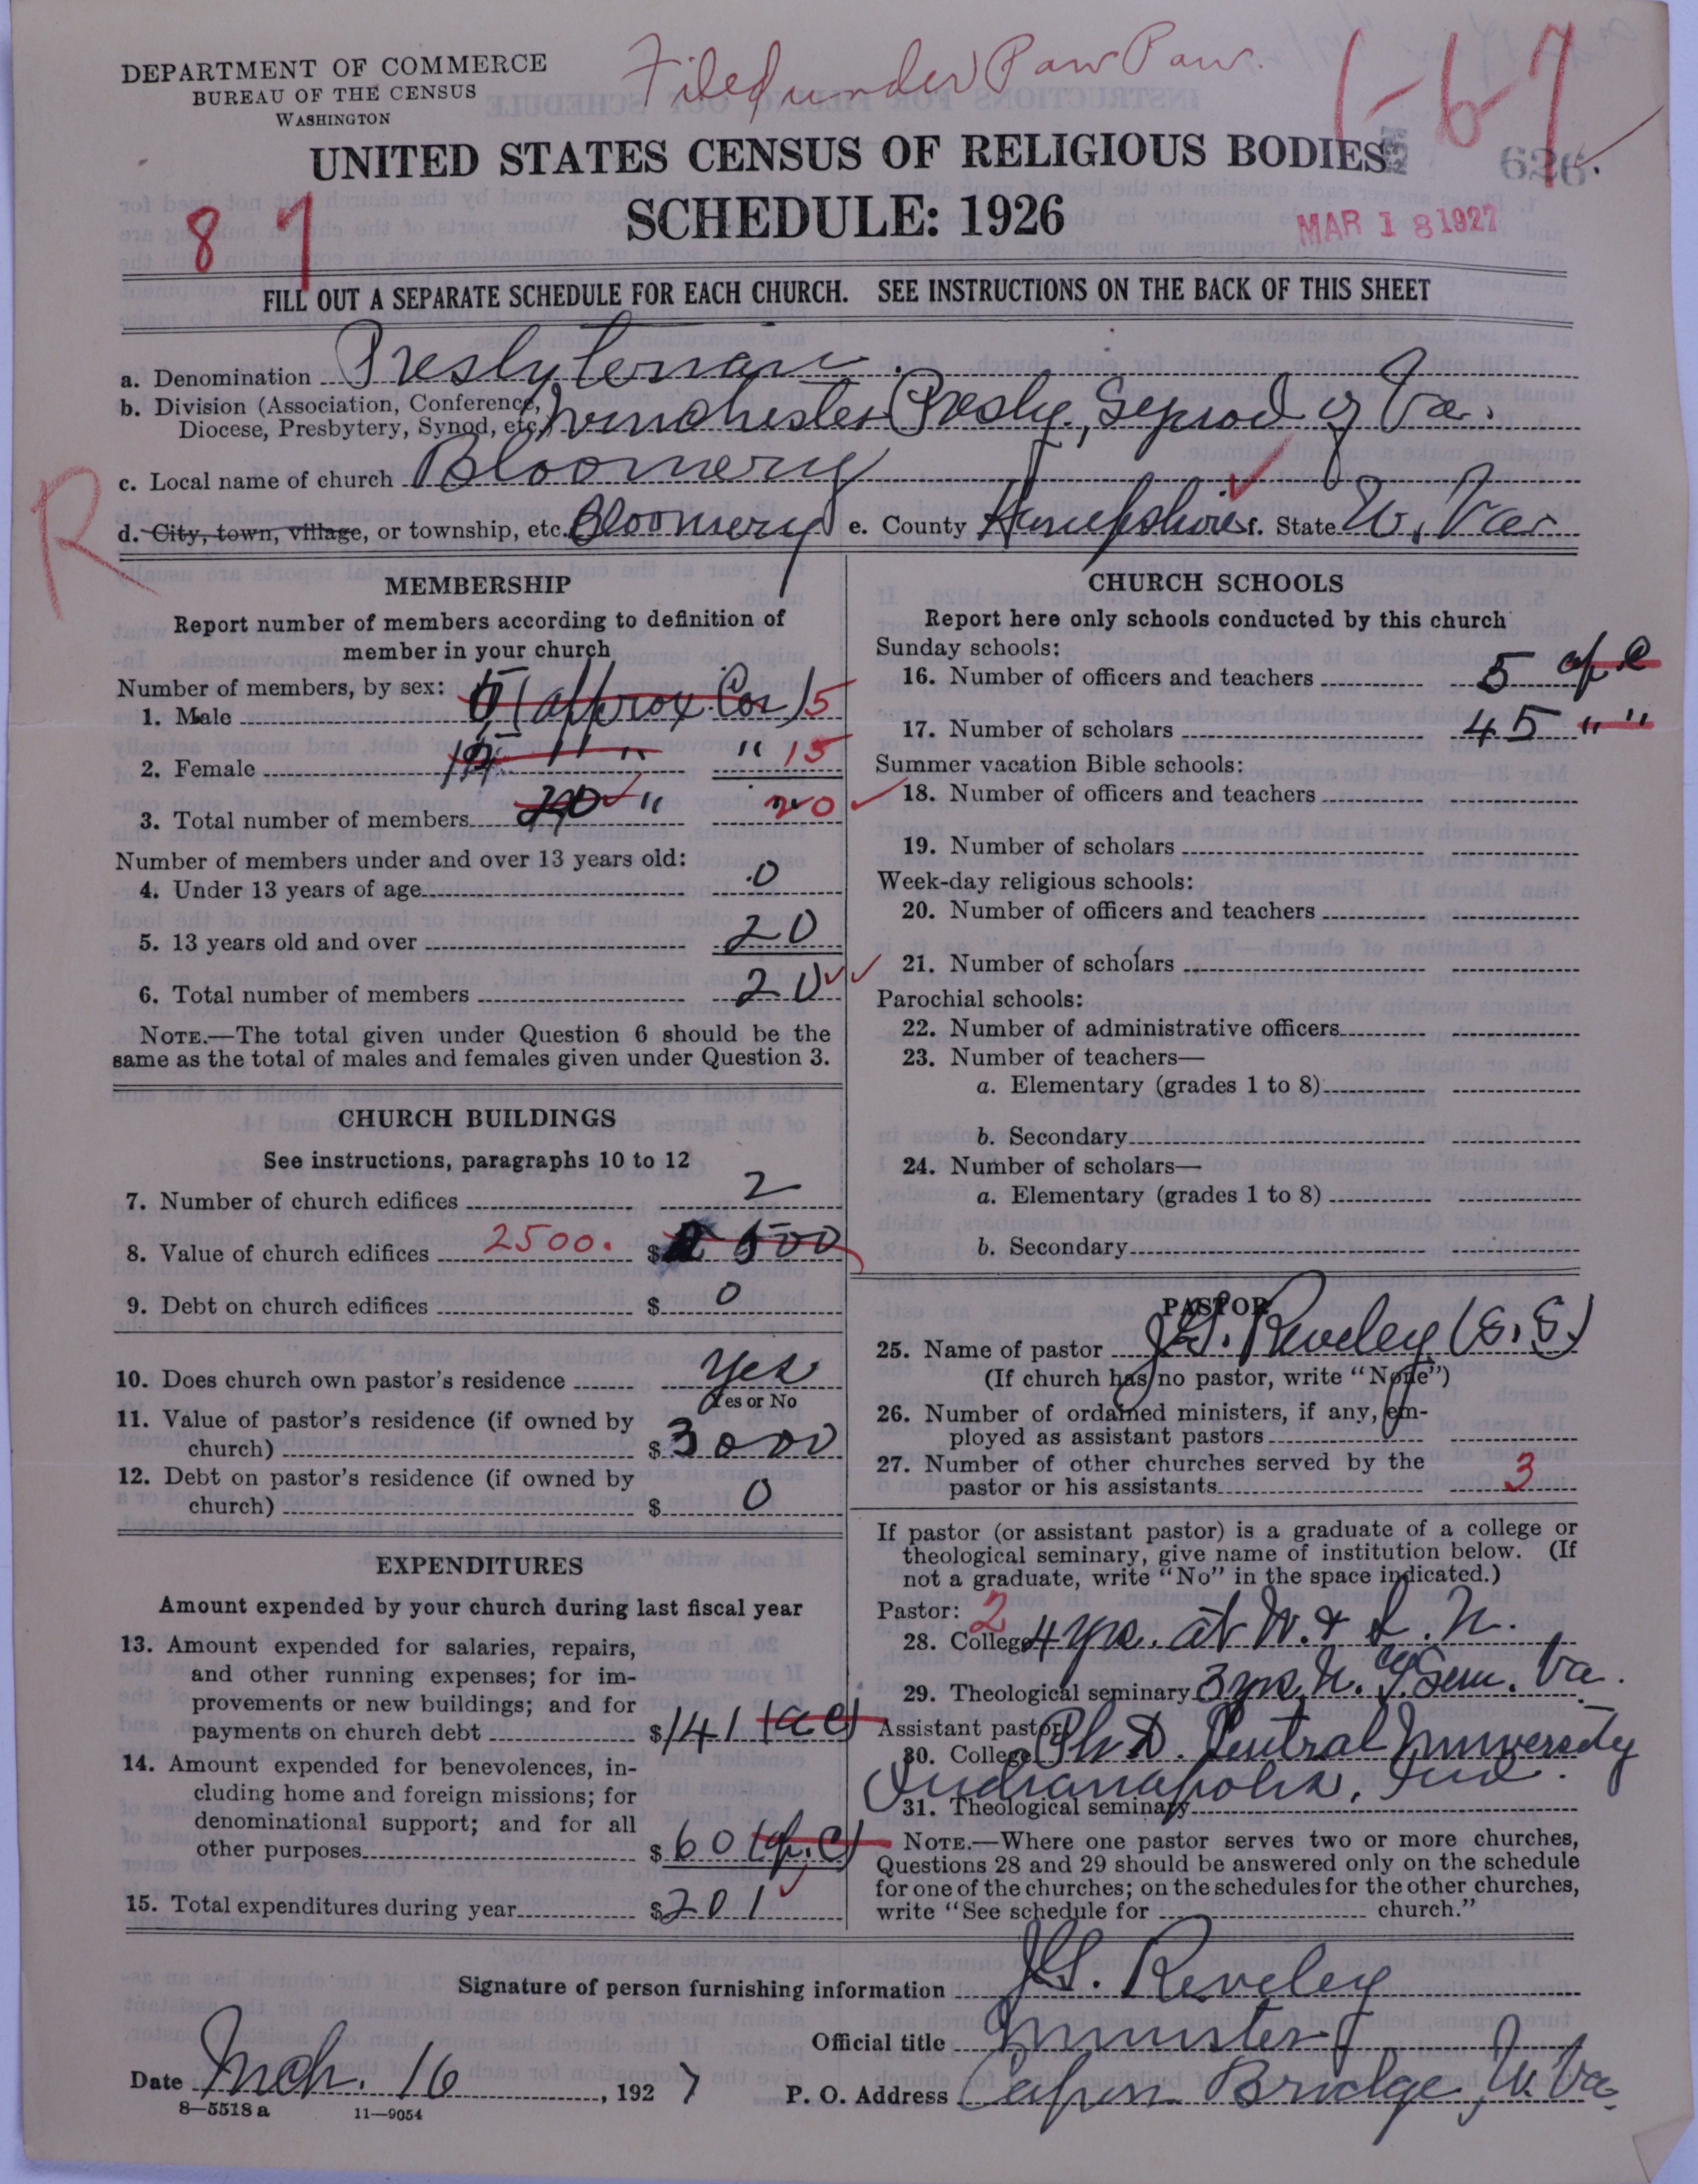 DEPARTMENT OF COMMERCE
BUREAU OF THE CENSUS
WASHINGTON
Filed under Paw Paw.
1-67
UNITED STATES CENSUS OF RELIGIOUS BODIES
626
SCHEDULE: 1926
87
MAR 18 1927
FILL OUT A SEPARATE SCHEDULE FOR EACH CHURCH. SEE INSTRUCTIONS ON THE BACK OF THIS SHEET
a. Denomination Presbyterian
b. Division (Association, Conference,
Diocese, Presbytery, Synod, etc.) Winchester Presby., Synod of Va.
c. Local name of church Bloomery
R
d. City, town, village, or township, etc. Bloomery e. County Hampshire f. State W. Va.
MEMBERSHIP
Report number of members according to definition of
member in your church
Number of members, by sex:
1. Male 5 (approx Cor) 5
2. Female 15 " " " 15
3. Total number of members 20 " 20
Number of members under and over 13 years old:
4. Under 13 years of age 0
5. 13 years old and over 20
6. Total number of members 20
NOTE.—The total given under Question 6 should be the
same as the total of males and females given under Question 3.
CHURCH BUILDINGS
See instructions, paragraphs 10 to 12
7. Number of church edifices 2
8. Value of church edifices 2500. $ 2500
9. Debt on church edifices $ 0
10. Does church own pastor's residence Yes
Yes or No
11. Value of pastor's residence (if owned by
church) $ 3000
12. Debt on pastor's residence (if owned by
church) $ 0
EXPENDITURES
Amount expended by your church during last fiscal year
13. Amount expended for salaries, repairs,
and other running expenses; for im-
provements or new buildings; and for
payments on church debt $ 141 (a c)
14. Amount expended for benevolences, in-
cluding home and foreign missions; for
denominational support; and for all
other purposes $ 60 (ap. c)
15. Total expenditures during year $ 201
CHURCH SCHOOLS
Report here only schools conducted by this church
Sunday schools:
16. Number of officers and teachers 5 ap c
17. Number of scholars 45 " "
Summer vacation Bible schools:
18. Number of officers and teachers
19. Number of scholars
Week-day religious schools:
20. Number of officers and teachers
21. Number of scholars
Parochial schools:
22. Number of administrative officers
23. Number of teachers—
a. Elementary (grades 1 to 8)
b. Secondary
24. Number of scholars—
a. Elementary (grades 1 to 8)
b. Secondary
PASTOR
25. Name of pastor J.G. Reveley (S.S.)
(If church has no pastor, write "None")
26. Number of ordained ministers, if any, em-
ployed as assistant pastors
27. Number of other churches served by the
pastor or his assistants 3
If pastor (or assistant pastor) is a graduate of a college or
theological seminary, give name of institution below. (If
not a graduate, write "No" in the space indicated.)
Pastor: 2
28. College 4 yrs. at W. & L. U.
29. Theological seminary 3 yrs. U. T. Sem. Va.
Assistant pastor:
30. College Ph D. Central University
Indianapolis, Ind.
31. Theological seminary
NOTE.—Where one pastor serves two or more churches,
Questions 28 and 29 should be answered only on the schedule
for one of the churches; on the schedules for the other churches,
write "See schedule for church."
Signature of person furnishing information J.G. Reveley
Official title Minister
Date Mch. 16, 1927 P. O. Address Capon Bridge, W. Va.
8—5518 a 11—9054